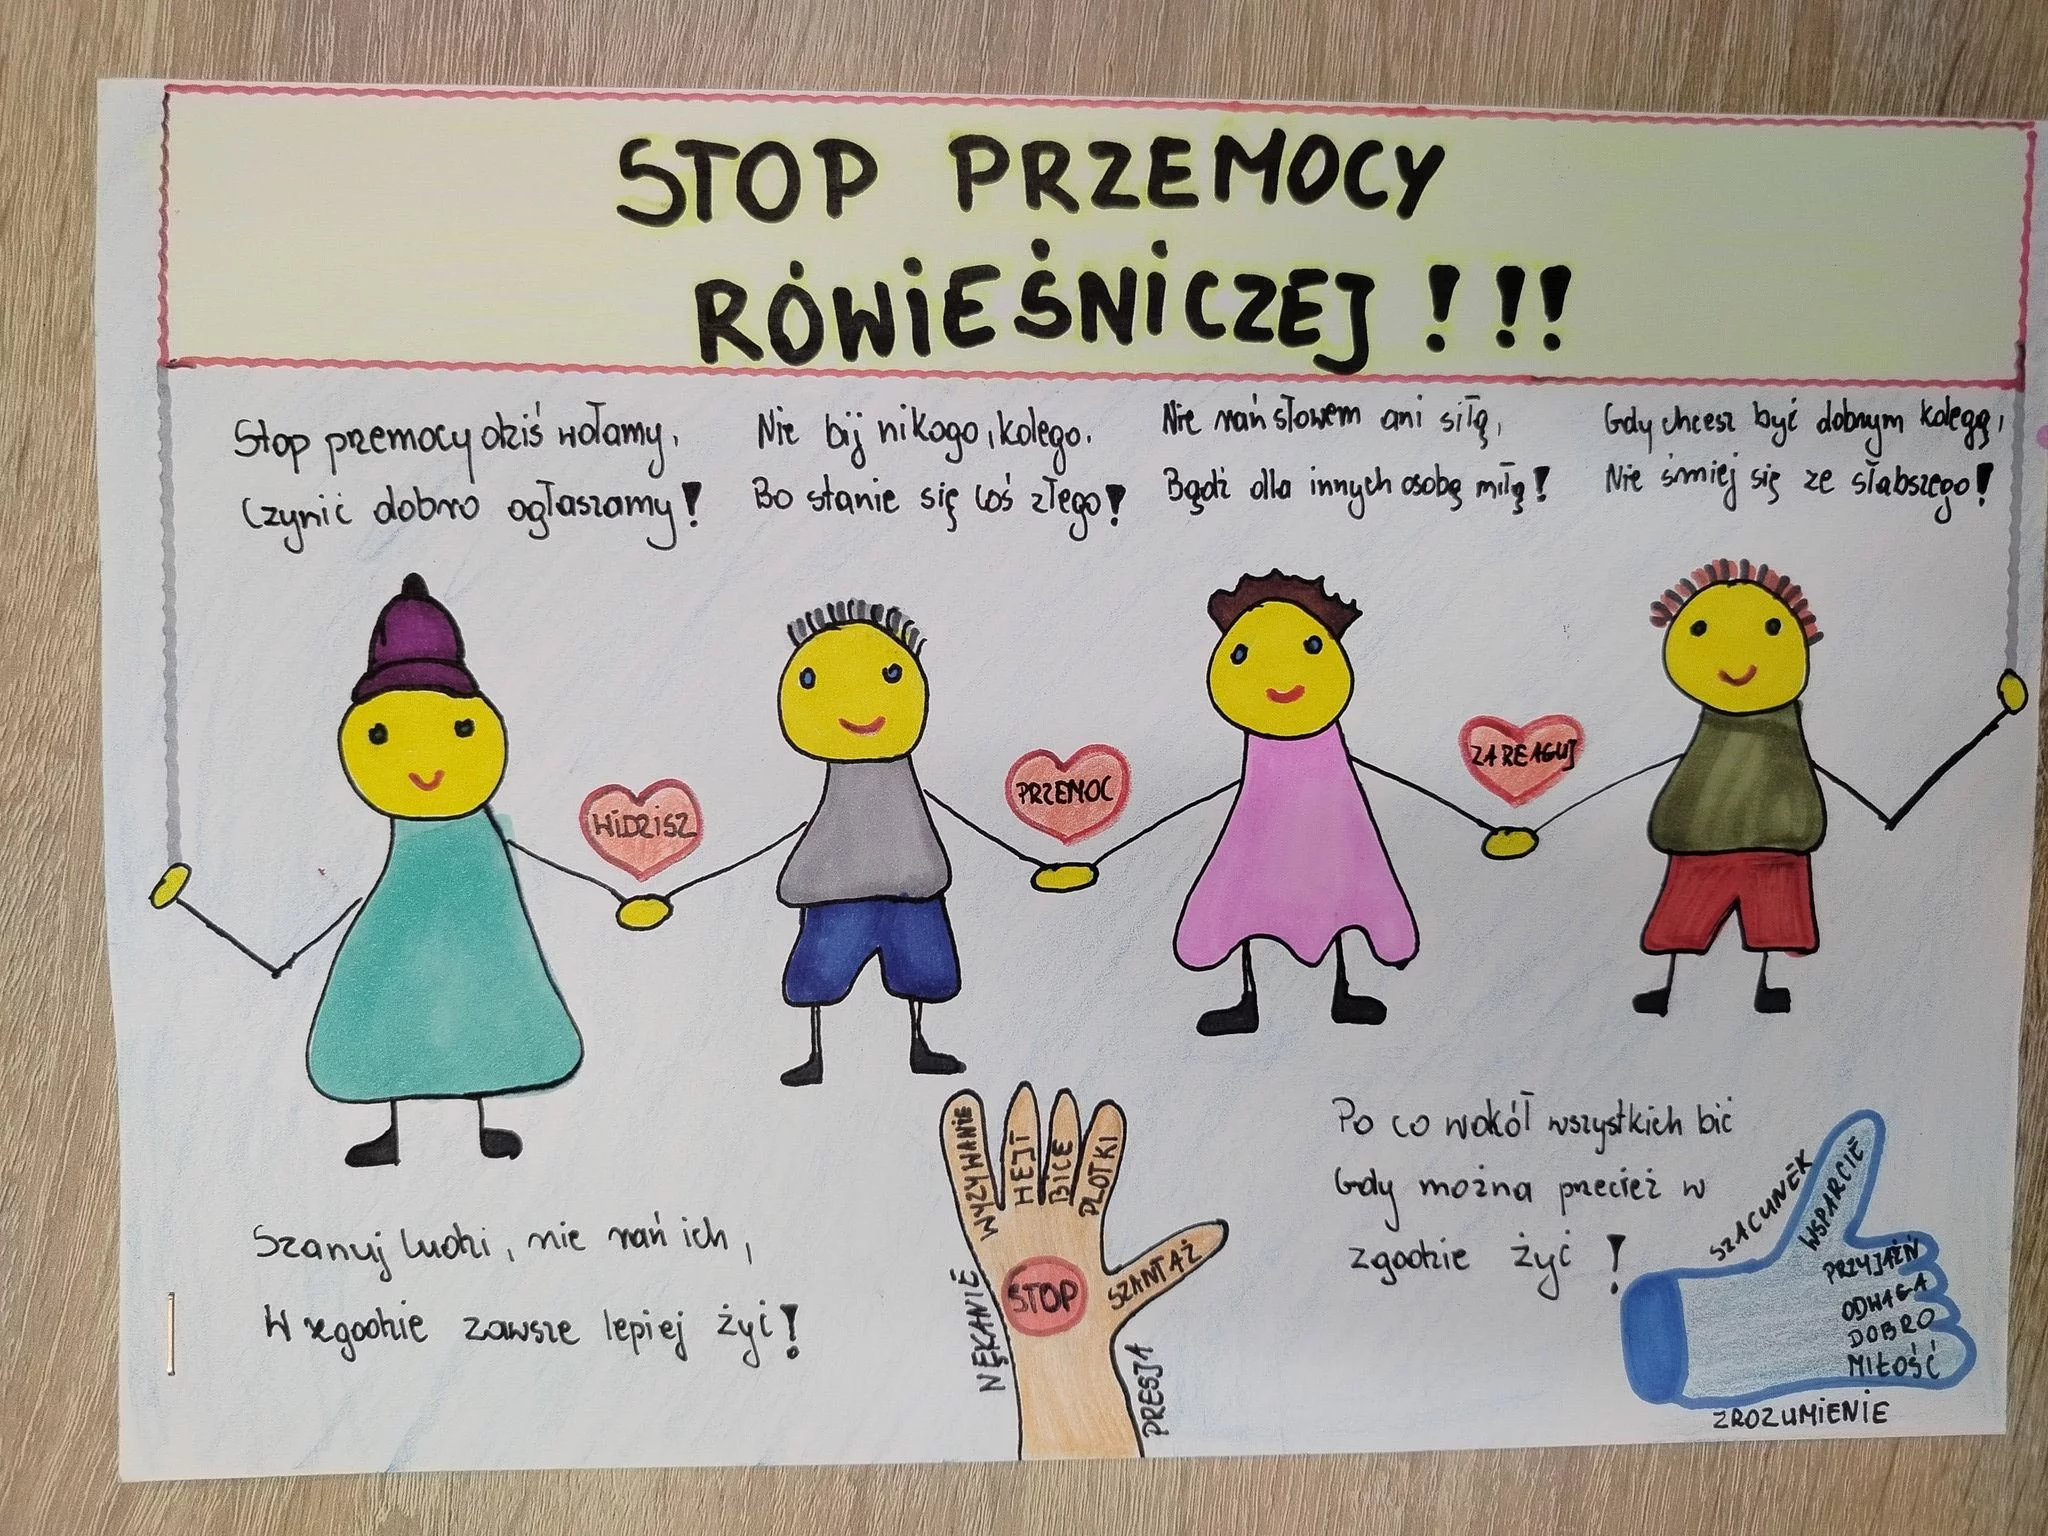 STOP PRZEMOCY
RÓWIEŚNICZEJ!!!
Stop przemocy dziś wołamy,
Czynić dobro ogłaszamy!
Nie bij nikogo, kolego.
Bo stanie się coś złego!
Nie rań słowem ani siłą,
Bądź dla innych osobą miłą!
Gdy chcesz być dobrym kolegą,
Nie śmiej się ze słabszego!
WIDZISZ
PRZEMOC
ZAREAGUJ
Szanuj ludzi, nie rań ich,
W zgodzie zawsze lepiej żyć!
WYZYWANIE
HEJT
BICE
PLOTKI
SZANTAŻ
STOP
NĘKANIE
PRESJA
Po co wokół wszystkich bić
Gdy można przecież w
zgodzie żyć!
SZACUNEK
WSPARCIE
PRZYJAŹŃ
ODWAGA
DOBRO
MIŁOŚĆ
ZROZUMIENIE